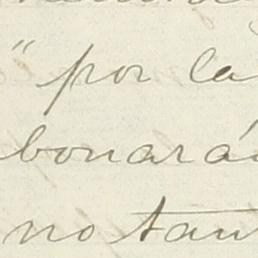 " por la
bonará
no tan